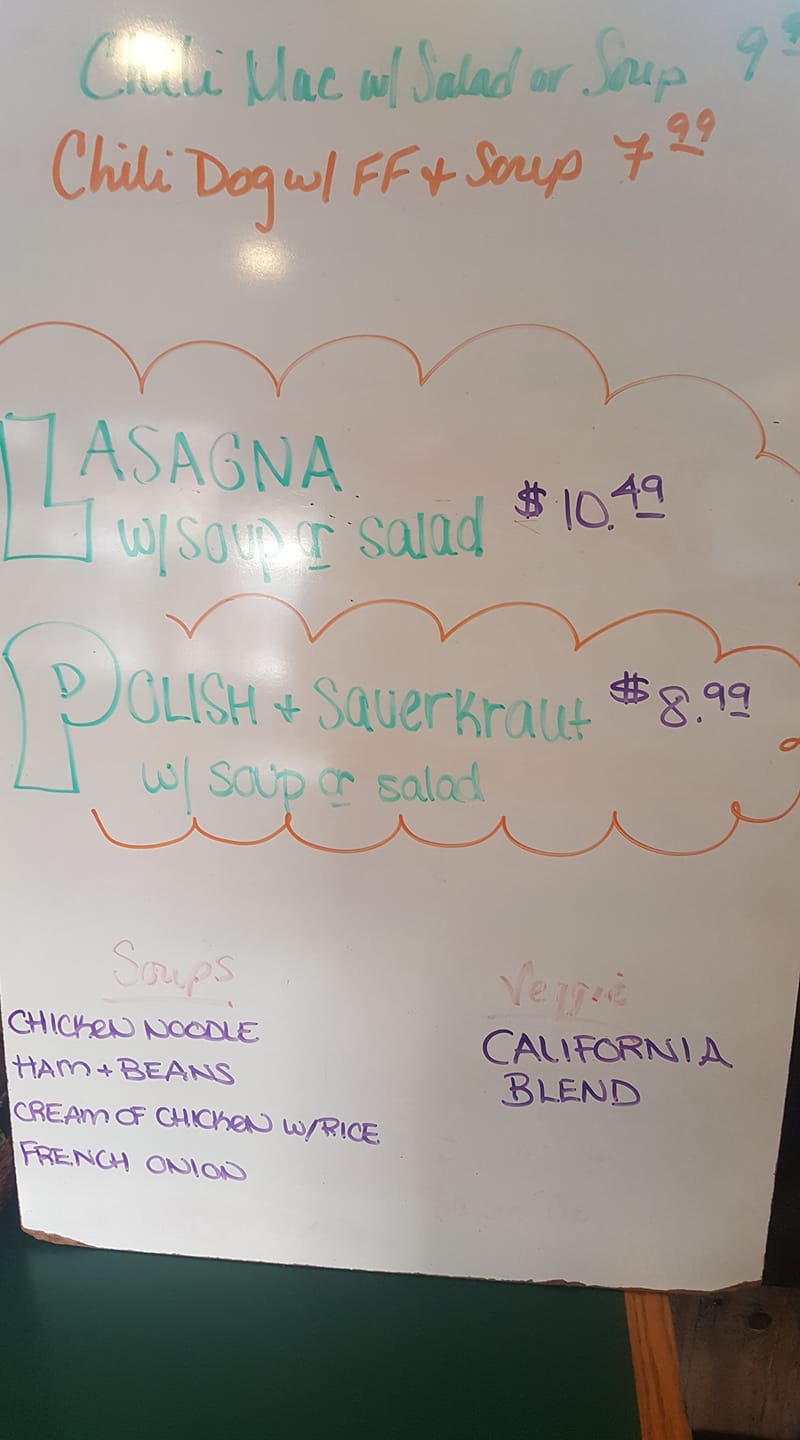 Chili Mac w/ Salad or Soup 9
Chili Dog w/ FF + Soup 7 99
LASAGNA
w/ soup or salad $10.49
POLISH + Sauerkraut $8.99
w/ soup or salad
Soups
CHICKEN NOODLE
HAM + BEANS
CREAM OF CHICKEN W/RICE
FRENCH ONION
Veggie
CALIFORNIA
BLEND